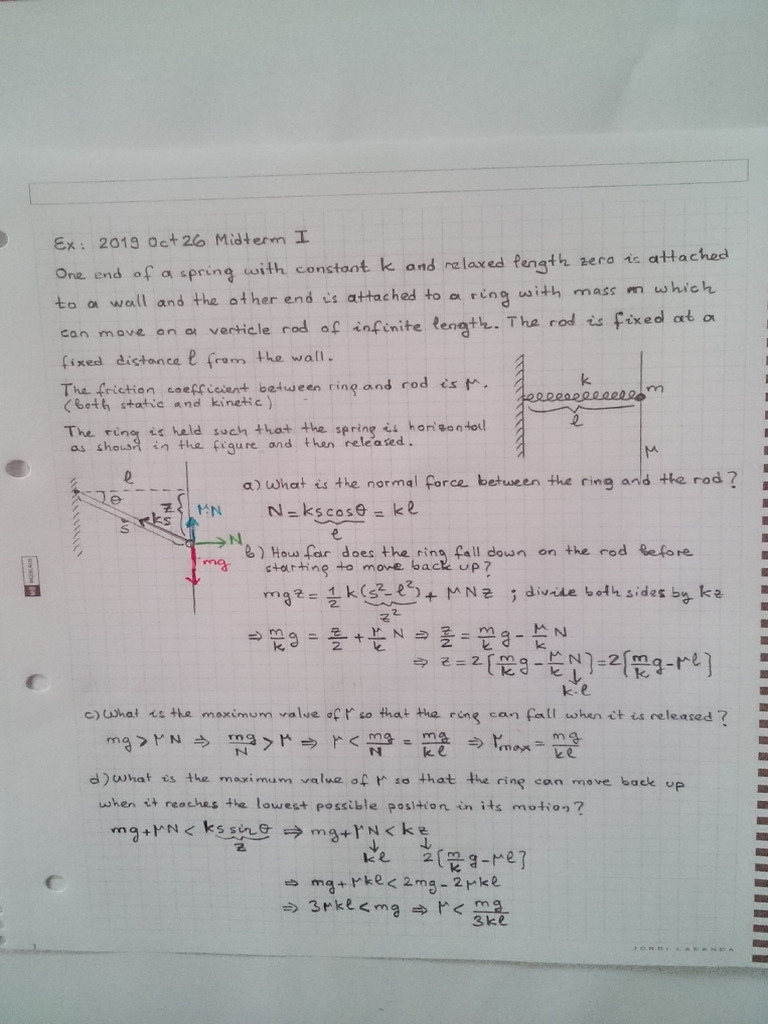 Ex: 2019 Oct 26 Midterm I
One end of a spring with constant k and relaxed length zero is attached
to a wall and the other end is attached to a ring with mass m which
can move on a verticle rod of infinite length. The rod is fixed at a
fixed distance ℓ from the wall.
The friction coefficient between ring and rod is μ.
(both static and kinetic)
The ring is held such that the spring is horizontal
as shown in the figure and then released.
k
m
ℓ
μ
ℓ
θ
z
μN
ks
s
N
mg
a) What is the normal force between the ring and the rod?
N = ks cosθ = kℓ
ℓ
b) How far does the ring fall down on the rod before
starting to move back up?
mgz = 1/2 k(s² - ℓ²) + μNz ; divide both sides by kz
z²
⇒ m/k g = z/2 + μ/k N ⇒ z/2 = m/k g - μ/k N
⇒ z = 2[m/k g - μ/k N] = 2[m/k g - μℓ]
k.ℓ
c) What is the maximum value of μ so that the ring can fall when it is released?
mg > μN ⇒ mg/N > μ ⇒ μ < mg/N = mg/kℓ ⇒ μmax = mg/kℓ
d) What is the maximum value of μ so that the ring can move back up
when it reaches the lowest possible position in its motion?
mg + μN < ks sinθ ⇒ mg + μN < kz
z
kℓ 2[m/k g - μℓ]
⇒ mg + μkℓ < 2mg - 2μkℓ
⇒ 3μkℓ < mg ⇒ μ < mg/3kℓ
JORDI LABANDA